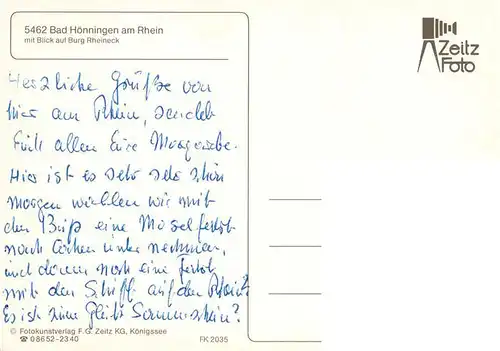 5462 Bad Hönningen am Rhein
mit Blick auf Burg Rheineck
Zeitz
Foto
Herzliche Grüße von
hier am Rhein, sendet
Euch allen Eure
Hier ist es sehr sehr schön
morgen wollen wir mit
den Bus eine Moselfahrt
nach Cochem unternehmen,
und dann noch eine Fahrt
mit den Schiff auf den Rhein.
Es ist zum Glück Sonnenschein.
© Fotokunstverlag F. G. Zeitz KG, Königssee
☎ 08652-2340 FK 2035